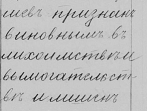 шевъ признанъ
виновнымъ въ
лихоимствѣ и
вымогательст-
вѣ и лишенъ